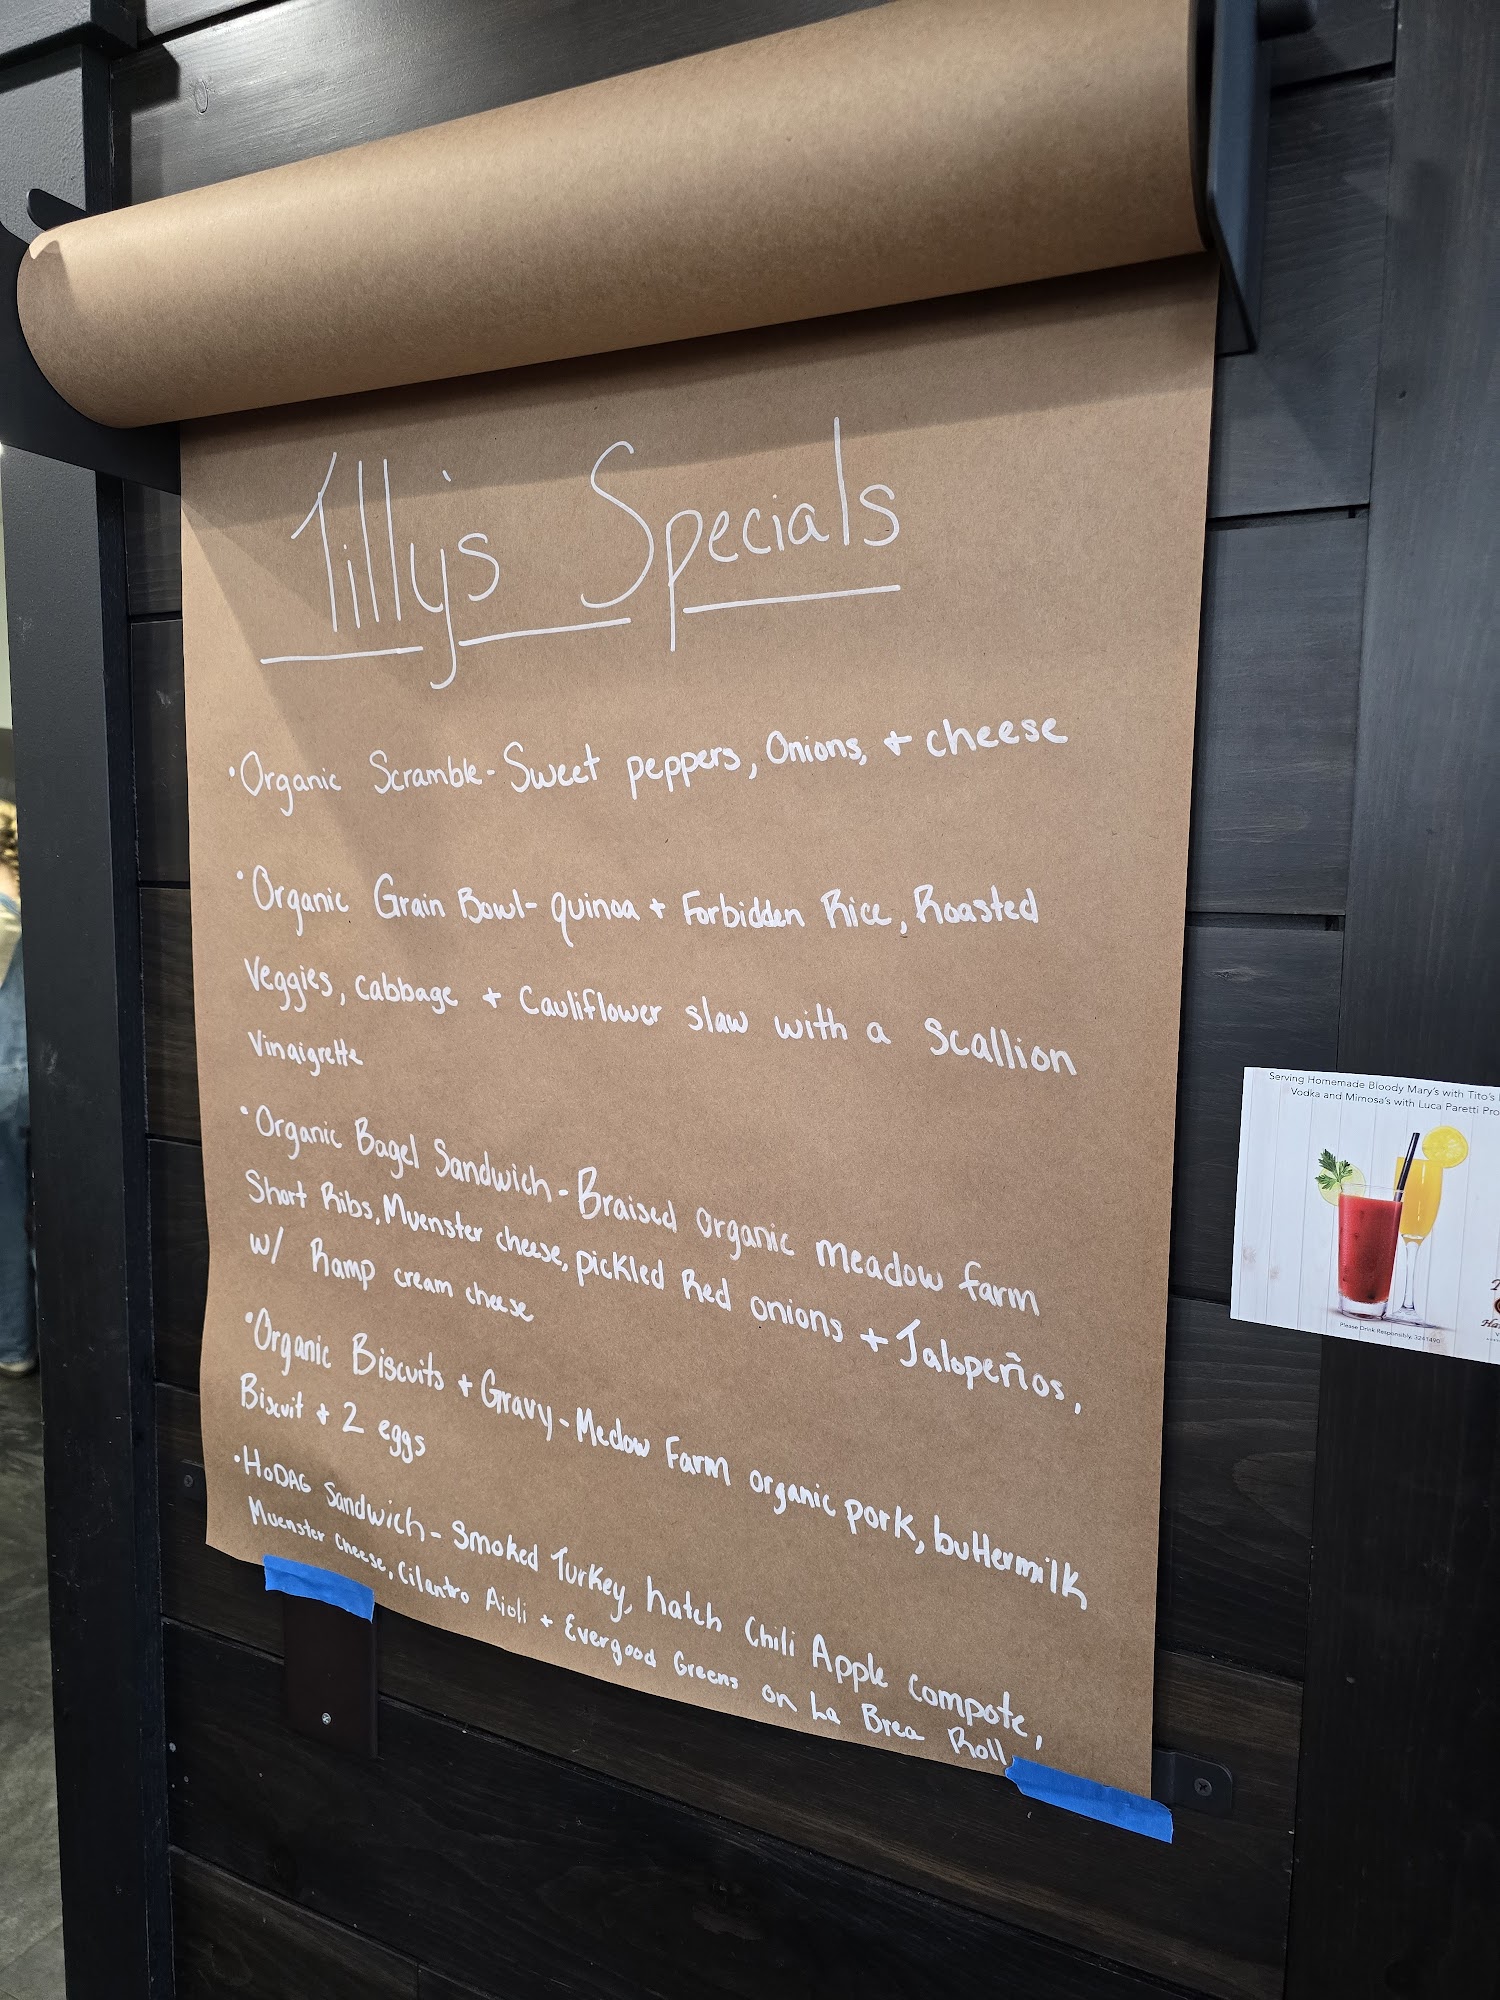 Tilly's Specials
•Organic Scramble- Sweet peppers, Onions, + cheese
•Organic Grain Bowl- quinoa + Forbidden Rice, Roasted
Veggies, cabbage + Cauliflower slaw with a scallion
Vinaigrette
•Organic Bagel Sandwich- Braised organic meadow farm
Short Ribs, Muenster cheese, pickled Red onions + Jalopeños,
w/ Ramp cream cheese
•Organic Biscuits + Gravy- Medow Farm organic pork, buttermilk
Biscuit + 2 eggs
•HoDAG Sandwich- Smoked Turkey, hatch Chili Apple compote,
Muenster Cheese, Cilantro Aioli + Evergood Greens on La Brea Roll
Serving Homemade Bloody Mary's with Tito's
Vodka and Mimosa's with Luca Paretti Pro
Please Drink Responsibly.